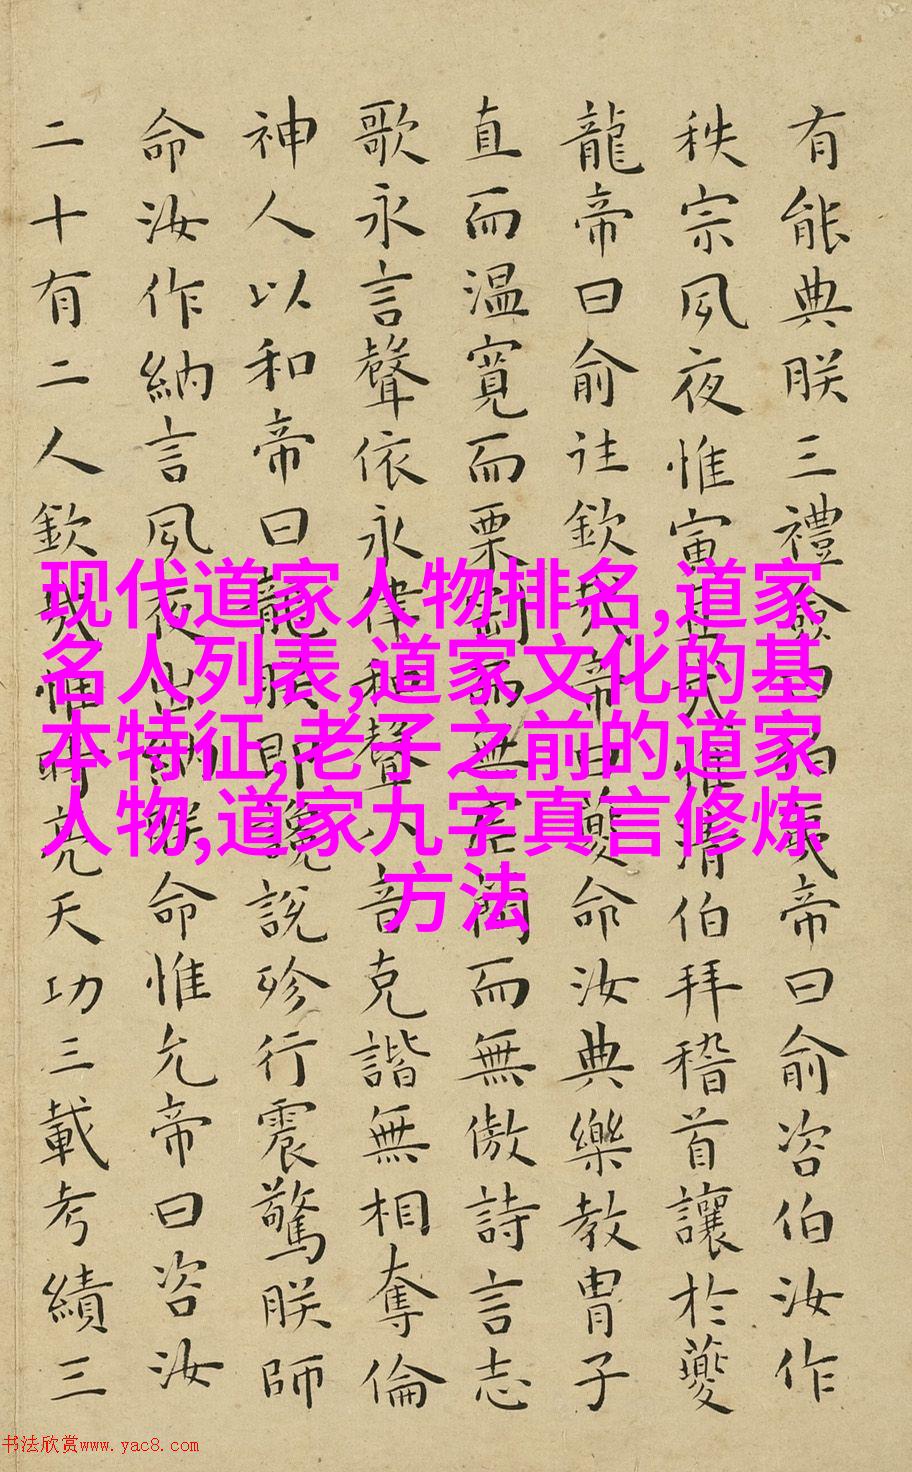 有能典朕三禮僉曰伯夷帝曰俞咨伯汝作
秩宗夙夜惟寅直哉惟清伯拜稽首讓於夔
龍帝曰俞往欽哉帝曰夔命汝典樂教胄子
直而温寬而栗剛而無虐簡而無傲詩言志
歌永言聲依永律和聲八音克諧無相奪倫
神人以和帝曰龍朕堲讒說殄行震驚朕師
命汝作納言夙夜出納朕命惟允帝曰咨汝
二十有二人欽哉惟時亮天功三載考績三
现代道家人物排名,道家
名人列表,道家文化的基
本特征,老子之前的道家
人物,道家九字真言修炼
方法
书法欣赏www.yac8.com